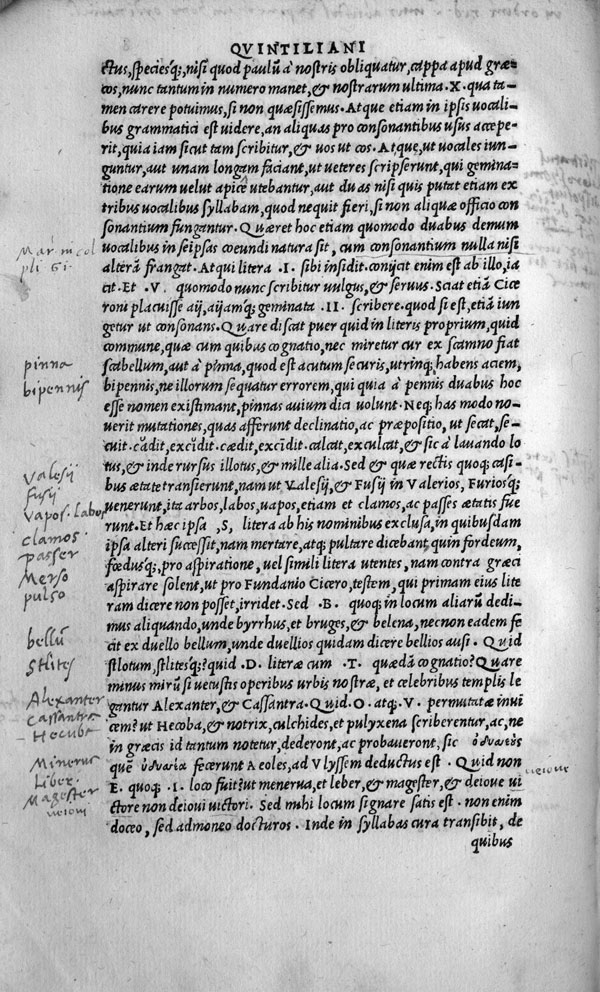 QVINTILIANI
ctus, speciesq;, nisi quod paulũ à nostris obliquatur, cappa apud græ-
cos, nunc tantum in numero manet, & nostrarum ultima .X. qua ta-
men carere potuimus, si non quæsissemus. Atque etiam in ipsis uocali-
bus grammatici est uidere, an aliquas pro consonantibus usus accepe-
rit, quia iam sicut tam scribitur, & uos ut cos. Atque, ut uocales iun-
guntur, aut unam longam faciant, ut ueteres scripserunt, qui gemina-
tione earum uelut apice utebantur, aut duas nisi quis putat etiam ex
tribus uocalibus syllabam, quod nequit fieri, si non aliquæ officio con
sonantium fungantur. Quæret hoc etiam quomodo duabus demum
Mar nicol
uocalibus in seipsas coeundi natura sit, cum consonantium nulla nisi
pli Gi
alterã frangat. Atqui litera .I. sibi insidit. conijcit enim est ab illo, ia
cit. Et .V. quomodo nunc scribitur uulgus, & seruus. Scíat etiã Cice
roni placuisse aij, aijamq; geminata .II. scribere. quod si est, etiã iun
getur ut consonans. Quare discat puer quid in literis proprium, quid
commune, quæ cum quibus cognatio, nec miretur cur ex scamno fiat
pinna
scabellum, aut à pinna, quod est acutum securis, utrinq; habens aciem,
bipennis
bipennis, ne illorum sequatur errorem, qui quia à pennis duabus hoc
esse nomen existimant, pinnas auium dici uolunt. Neq; has modo no-
uerit mutationes, quas afferunt declinatio, ac præpositio, ut secat, se-
cuit. cãdit, excĩdit. cædit, excĩdit. calcat, exculcat, & sic à lauando lo
tus, & inde rursus illotus, & mille alia. Sed & quæ rectis quoq; casi-
Valesij
bus ætate transierunt, nam ut Valesij, & Fusij in Valerios, Furiosq;
Fusij
uenerunt, ita arbos, labos, uapos, etiam et clamos, ac passes ætatis fue
vapos. labos
runt. Et hæc ipsa ,S, litera ab his nominibus exclusa, in quibusdam
clamos.
ipsa alteri successit, nam mertare, atq; pultare dicebant, quin fordeum,
passer
fœdusq;, pro aspiratione, uel simili litera utentes, nam contra græci
Merso
aspirare solent, ut pro Fundanio Cicero, testem, qui primam eius lite
pulso
ram dicere non posset, irridet. Sed .B. quoq; in locum aliarũ dedi-
mus aliquando, unde byrrhus, et bruges, & belena, necnon eadem fe
bellũ
cit ex duello bellum, unde duellios quidam dicere bellios ausi. Quid
Stlites
stlotum, stlitesq;? quid .D. literæ cum .T. quædã cognatio? Quare
minus mirũ si uetustis operibus urbis nostræ, et celebribus templis le
Alexanter
gantur Alexanter, & Cassantra. Quid .O. atq; .V. permutatæ inui
Cassantra
cem? ut Hecoba, & notrix, culchides, et pulyxena scriberentur, ac, ne
Hecuba
in græcis id tantum notetur, dederont, ac probaueront, sic ὀδυσεὺς
Minerua
quẽ ὑδυσία fecerunt Aeoles, ad Vlyssem deductus est. Quid non
Liber.
E. quoq; .I. loco fuit? ut menerua, et leber, & magester, & deioue ui
Magester
ctore non deioui uictori. Sed mihi locum signare satis est. non enim
doceo, sed admoneo docturos. Inde in syllabas cura transibit, de
quibus